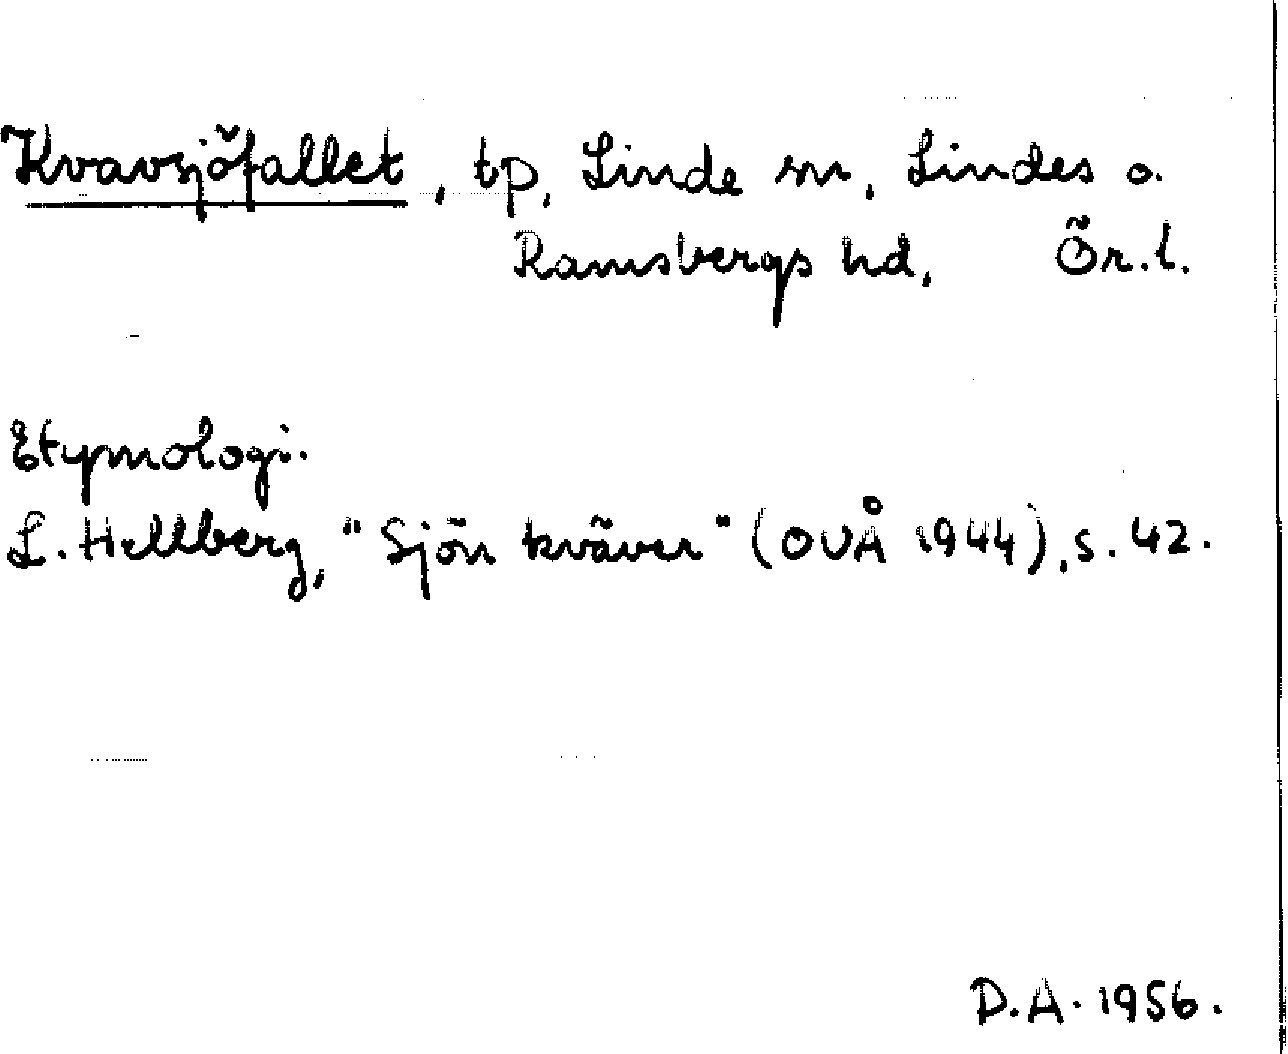 Kvavsjöfallet, tp, Linde sn, Lindes o.
Ramsbergs hd, Ör.l.
Etymologi.
L. Hellberg, "Sjön kväver" (OUÅ 1944), s. 42.
D.A. 1956.